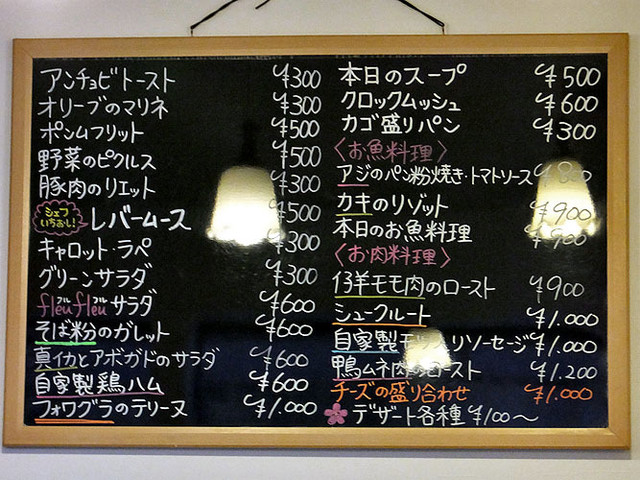 アンチョビトースト ¥300
オリーブのマリネ ¥300
ポンムフリット ¥500
野菜のピクルス ¥500
豚肉のリエット ¥300
シェフいちおし! レバームース ¥500
キャロット・ラペ ¥300
グリーンサラダ ¥300
fleu fleu サラダ ¥600
そば粉のガレット ¥600
真イカとアボガドのサラダ ¥600
自家製鶏ハム ¥600
フォワグラのテリーヌ ¥1.000
本日のスープ ¥500
クロックムッシュ ¥600
カゴ盛りパン ¥300
〈お魚料理〉
アジのパン粉焼き・トマトソース ¥800
カキのリゾット ¥900
本日のお魚料理 ¥900
〈お肉料理〉
仔羊モモ肉のロースト ¥900
シュークルート ¥1.000
自家製 リソーセージ ¥1.000
鴨ムネ肉のロースト ¥1.200
チーズの盛り合わせ ¥1.000
デザート各種 ¥100～